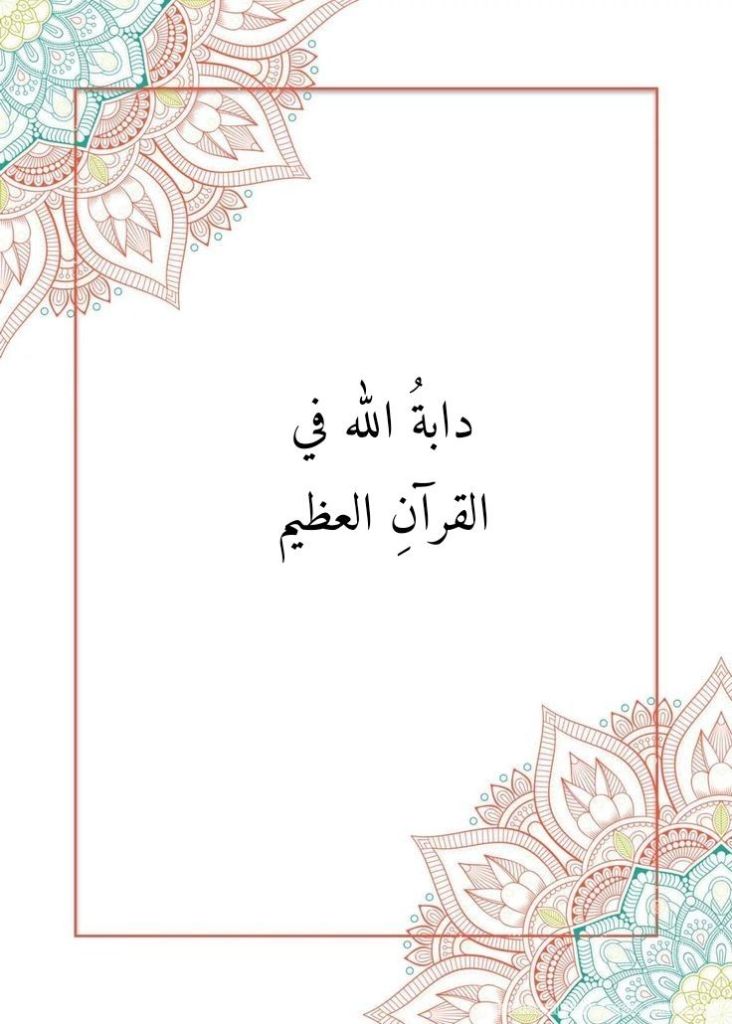 دابةُ الله في
القرآنِ العظيم